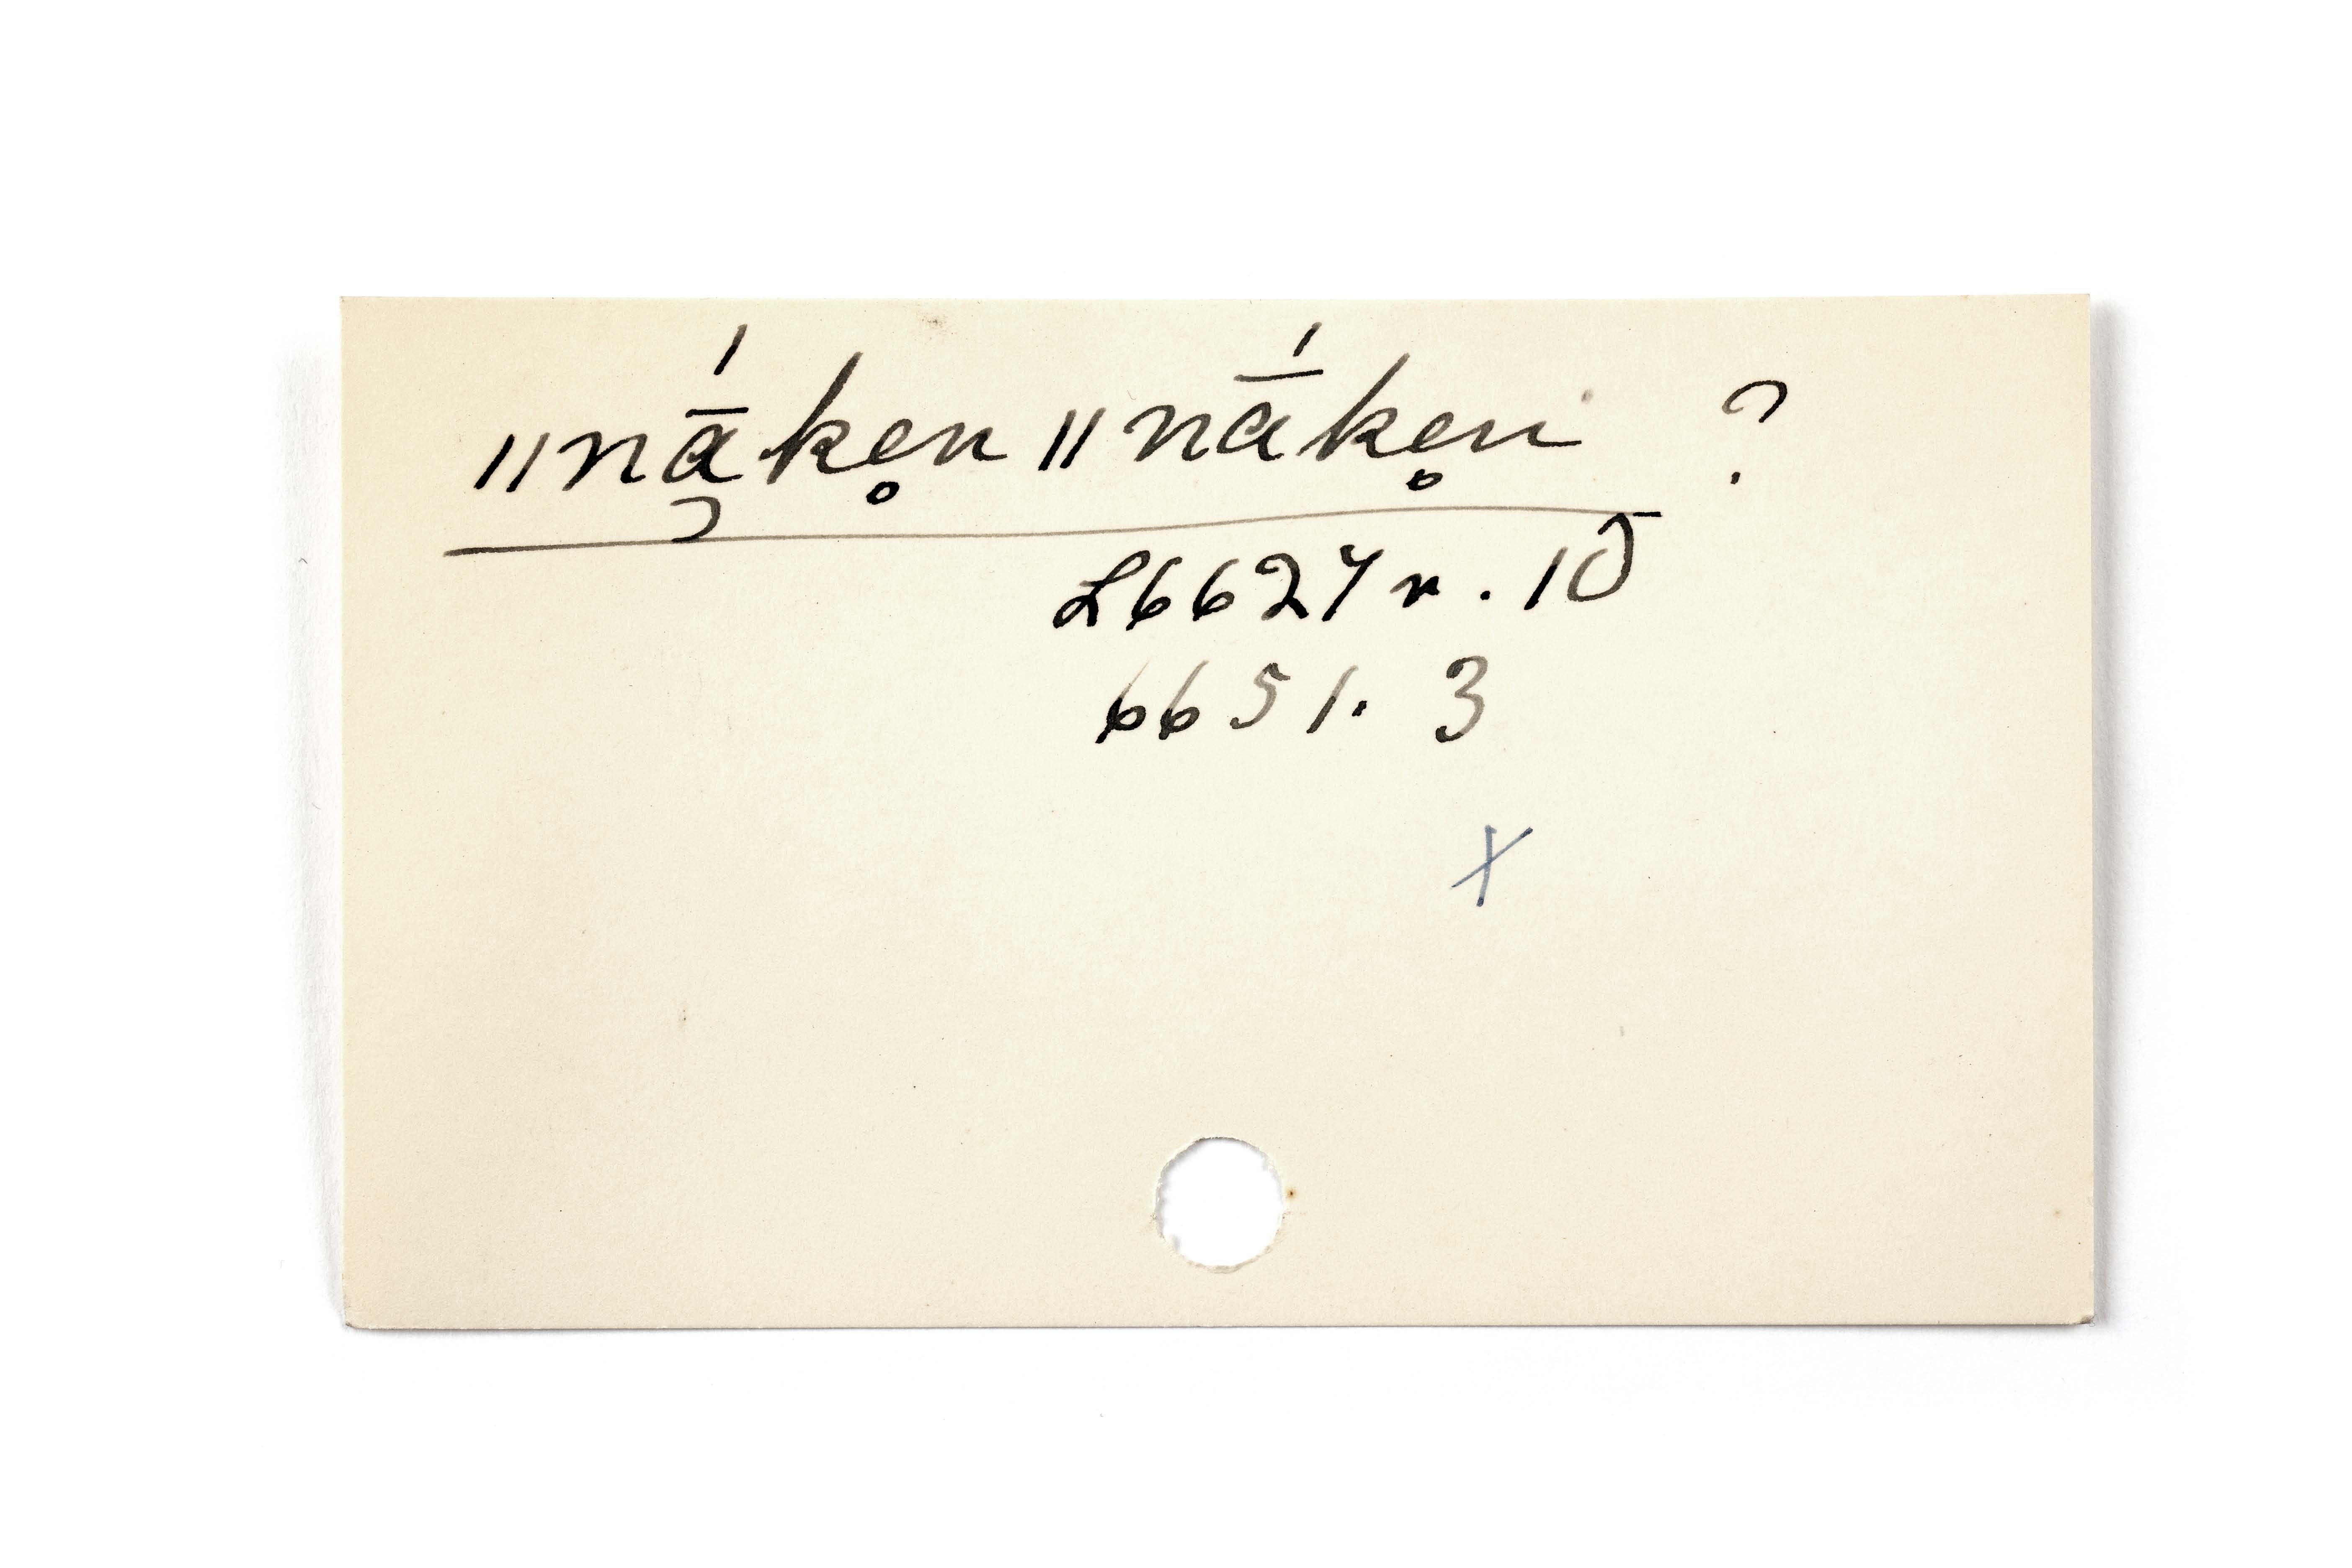 ‖ną̄́ke̥n ‖nā́ke̥n ?
L6627r. 10
6651. 3
X